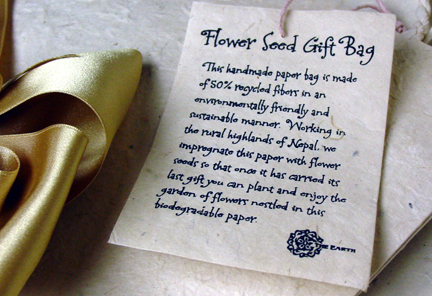 Flower Seed Gift Bag
This handmade paper bag is made
of 50% recycled fibers in an
environmentally friendly and
sustainable manner. Working in
the rural highlands of Nepal, we
impregnate this paper with flower
seeds so that once it has carried its
last gift you can plant and enjoy the
garden of flowers nestled in this
biodegradable paper.
EARTH